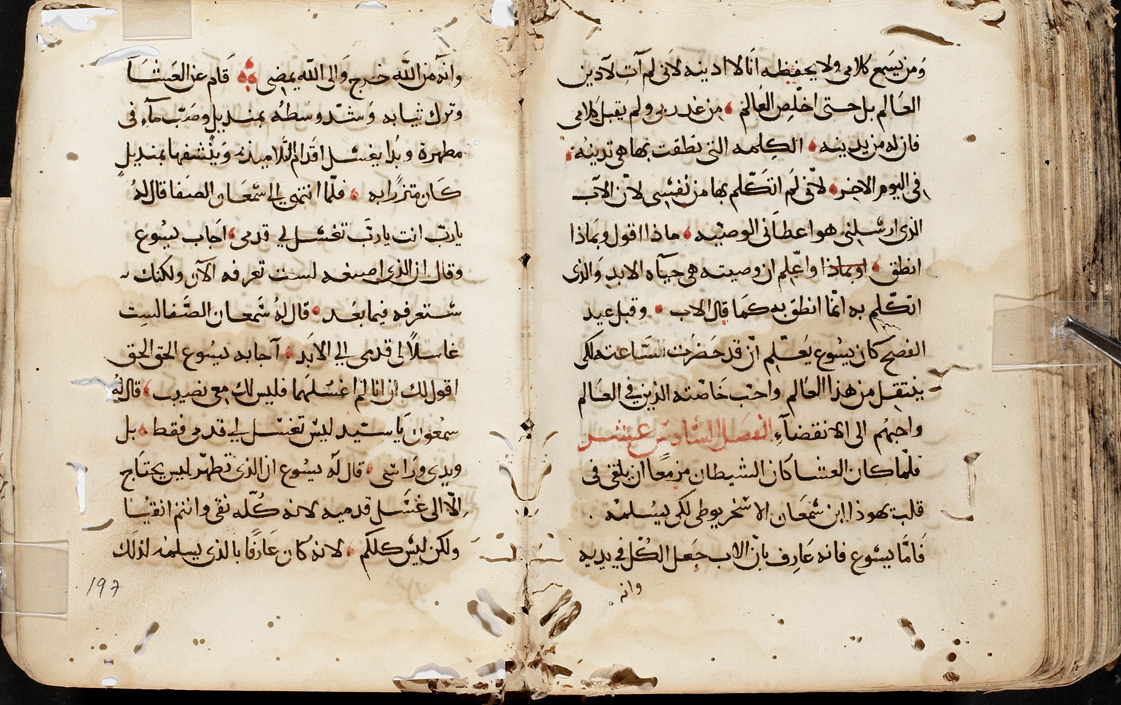 ومن يسمع كلامي ولا يحفظه انا لا ادينه لاني لم آت لادين
العالم بل حتى اخلص العالم من غدر بي ولم يقبل كلامي
فان له من يدينه الكلمه التي نطقت بها هي تدينه
في اليوم الاخير لاني لم اتكلم بها من نفسي لان الآب
الذي ارسلني هو اعطاني الوصيه ماذا اقول وبماذا
انطق اوبماذا واعلم ان وصيته هي حياه الابد والذي
اتكلم به انما انطق به كما قال الاب وقبل عيد
الفصح كان يسوع يعلم ان قد حضرت الساعته لكي
ينتقل من هذا العالم واحب خاصته الذين في العالم
واحبهم الى الانقضاء الفصل السادس عشر
فلما كان العشا كان الشيطان مزمعا ان يلقي في
قلب يهوذا ابن شمعان الاسخريوطي لكي يسلمه
فاما يسوع فانه عارف بان الاب جعل الكل في يديه
وانه
وانه من الله خرج والى الله يمضي قام عن العشا
وترك ثيابه وشد وسطه بمنديل وصب ماء في
مطهرة وبدا يغسل اقدام التلاميذ وينشفها بمنديل
كان متزرا به فلما انتهى الى شمعان الصفا قال له
يارب انت يارب تغسل لي قدمي اجاب يسوع
وقال ان الذي اصنعه لست تعرفه الآن ولكنك
ستعرفه فيما بعد قال له شمعان الصفا لست
غاسلا لي قدمي الى الابد اجابه يسوع الحق الحق
اقول لك ان انا لم اغسلهما فليس لك معي نصيب قال له
سمعون يا سيد ليس تغسل لي قدمي فقط بل
ويدي وراسي قال له يسوع ان الذي تطهر ليس يحتاج
الا الى غسل قدميه لانه كله نقي وانتم انقيا
ولكن ليس كلكم لانه كان عارفا بالذي يسلمه لذلك
197